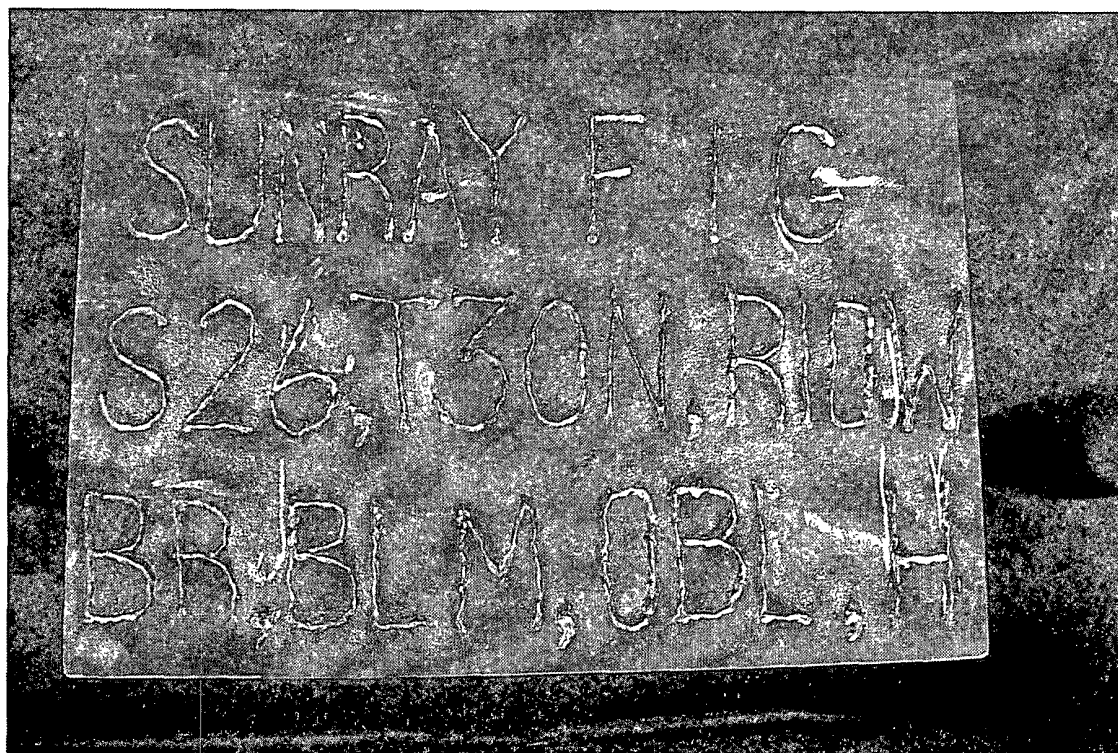 SUNRAY F 1G
S26,T30N,R10W
BR,BLM,OBL,H